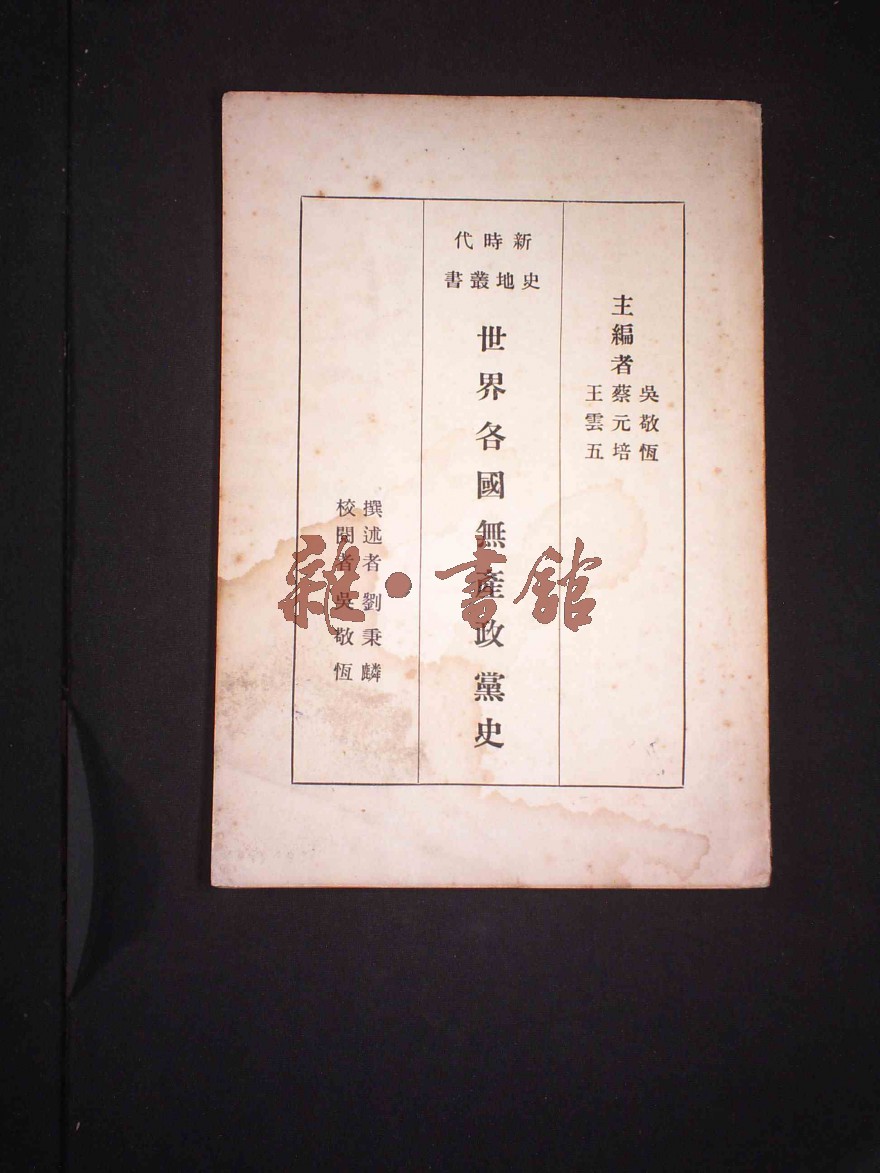 主編者
吳敬恆
蔡元培
王雲五
新時代
史地叢書
世界各國無產政黨史
撰述者 劉秉麟
校閱者 吳敬恆
雜·書館